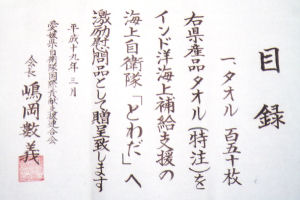 目録
一、タオル 百五十枚
右県産品タオル(特注)を
インド洋海上補給支援の
海上自衛隊「とわだ」へ
激励慰問品として贈呈致します
平成十九年三月
愛媛県自衛隊国際貢献支援連合会
会長 嶋岡數義